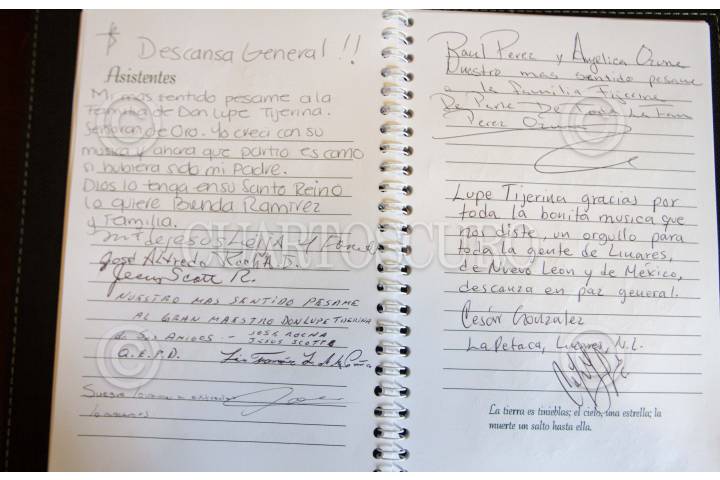 Descansa General !!
Asistentes
Mi mas sentido pesame a la
familia de Don Lupe Tijerina.
Señoron de Oro. Yo creci con su
musica y ahora que partio es como
si hubiera sido mi Padre.
Dios lo tenga en su Santo Reino
lo quiere Brenda Ramirez
y Familia.
Ma de Jesus Leija y
José Alfredo Rocha D.
Jesus Scott R.
NUESTRO MAS SENTIDO PESAME
AL GRAN MAESTRO DON LUPE TIJERINA
de sus AMIGOS - JOSE ROCHA
JESUS SCOTT
Q.E.P.D.
Raul Perez y Angelica Ozuna
Nuestro mas sentido pesame
a la Familia Tijerina
De Parte De toda la Fam
Perez Ozuna
Lupe Tijerina gracias por
toda la bonita musica que
nos diste, un orgullo para
toda la gente de Linares,
de Nuevo León y de México,
descanza en paz general.
Cesar Gonzalez
La Petaca, Linares, N.L.
La tierra es tinieblas; el cielo, una estrella; la
muerte un salto hasta ella.
CUARTOSCURO